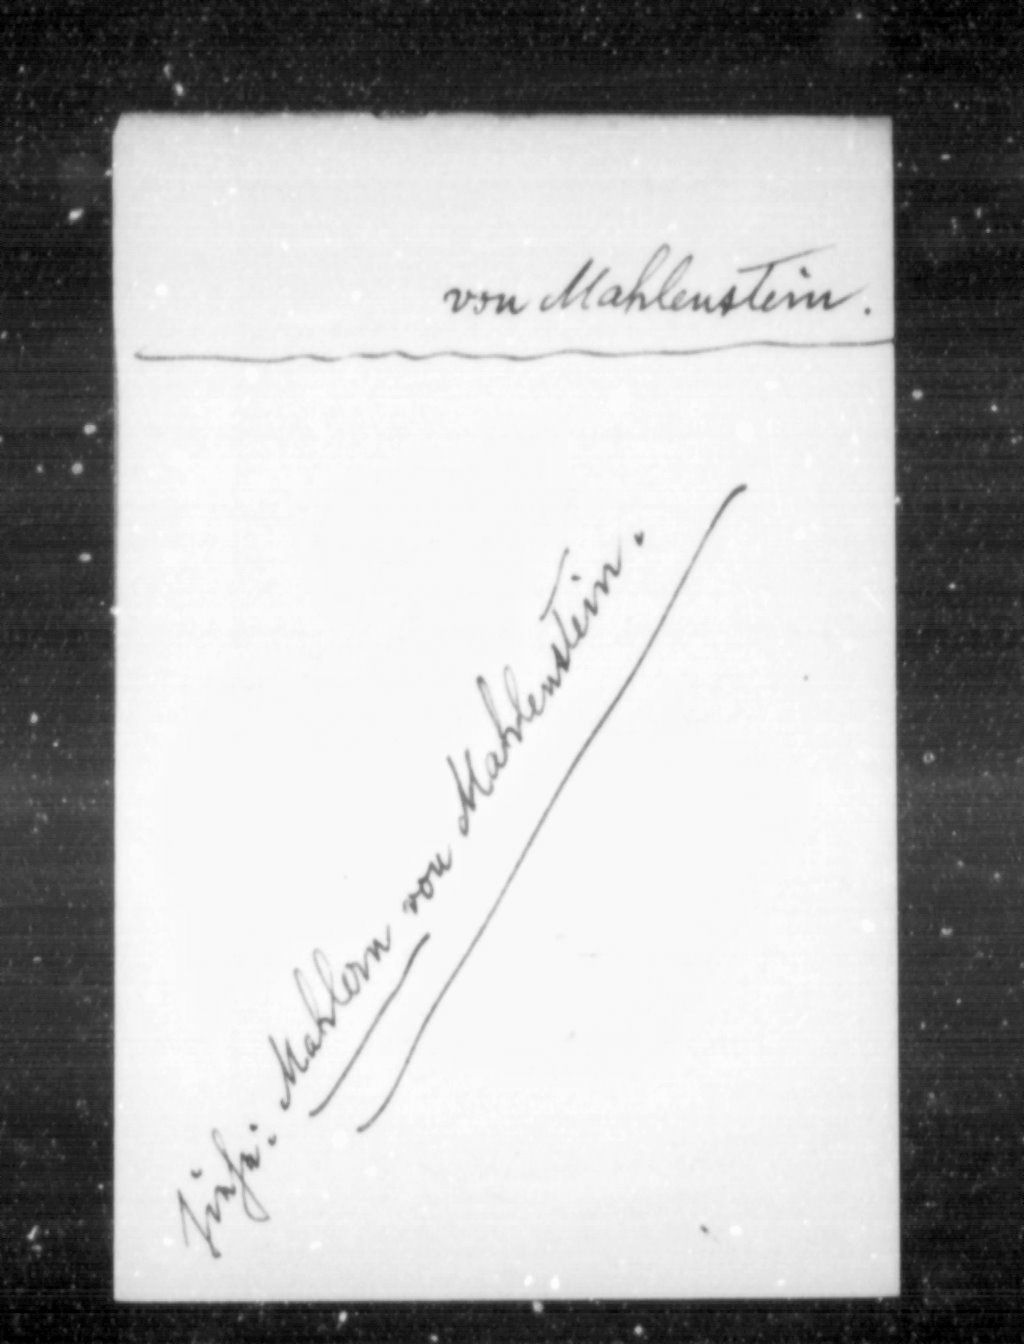 von Mahlenstein.
siehe: Mahlern von Mahlenstein.